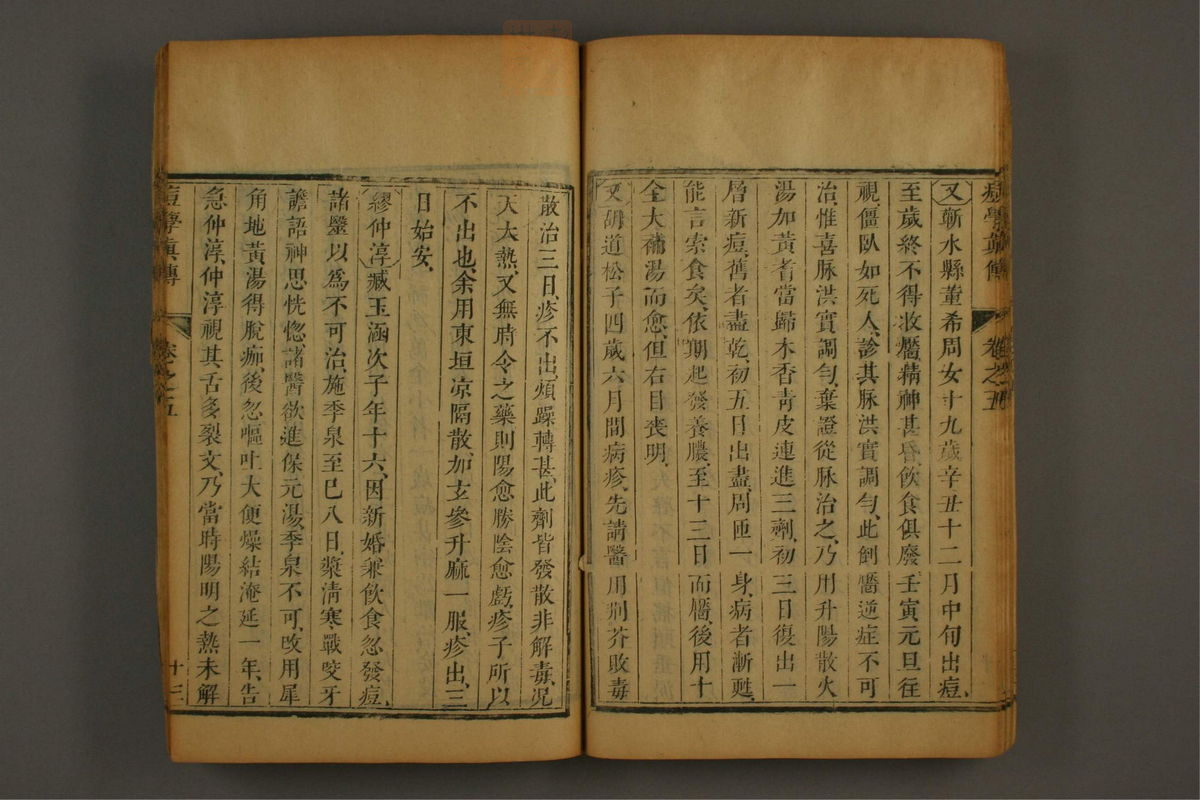 痘學眞傳 卷之五
又蘄水縣董希周女十九歲辛丑十二月中旬出痘、
至歲終不得收靨精神甚昏飲食俱廢壬寅元旦往
視、僵臥如死人、診其脉洪實調勻、此倒靨逆症不可
治、惟喜脉洪實調勻、棄證從脉治之、乃用升陽散火
湯加黃耆當歸木香靑皮連進三劑、初三日復出一
層新痘、舊者盡乾、初五日出盡、周匝一身、病者漸甦、
能言索食矣、依期起發養膿、至十三日而靨、後用十
全大補湯而愈、但右目喪明、
又胡道松子四歲六月間病疹、先請醫用荆芥敗毒
散治三日、疹不出煩躁轉甚、此劑皆發散非解毒、况
天大熱、又無時令之藥則陽愈勝陰愈虧、疹子所以
不出也、余用東垣凉隔散、加玄參升麻一服、疹出、三
日始安、
繆仲淳臧玉涵次子年十六、因新婚兼飲食忽發痘、
諸醫以爲不可治、施季泉至已八日、漿淸寒戰咬牙
譫語神思恍惚、諸醫欲進保元湯、季泉不可、改用犀
角地黃湯得脫痂、後忽嘔吐大便燥結淹延一年、告
急仲淳、仲淳視其舌多裂文、乃當時陽明之熱未解
痘學眞傳 卷之五 十三